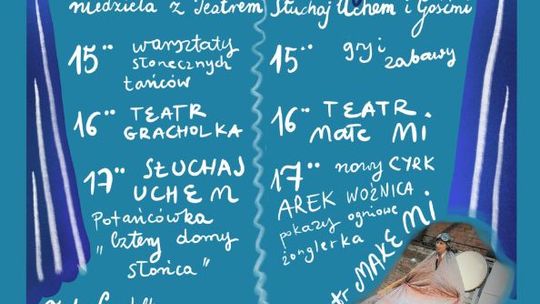 niedziela z Teatrem
15°° warsztaty
słonecznych
tańców
16°° TEATR
GRACHOLKA
17°° SŁUCHAJ
UCHEM
Potańcówka
„Cztery domy
słońca"
Słuchaj Uchem i Gośćmi
15°° gry i
zabawy
16°° TEATR
Małe Mi
17°° nowy CYRK
AREK WOŹNICA
pokazy ogniowe
żonglerka
MAŁE Mi